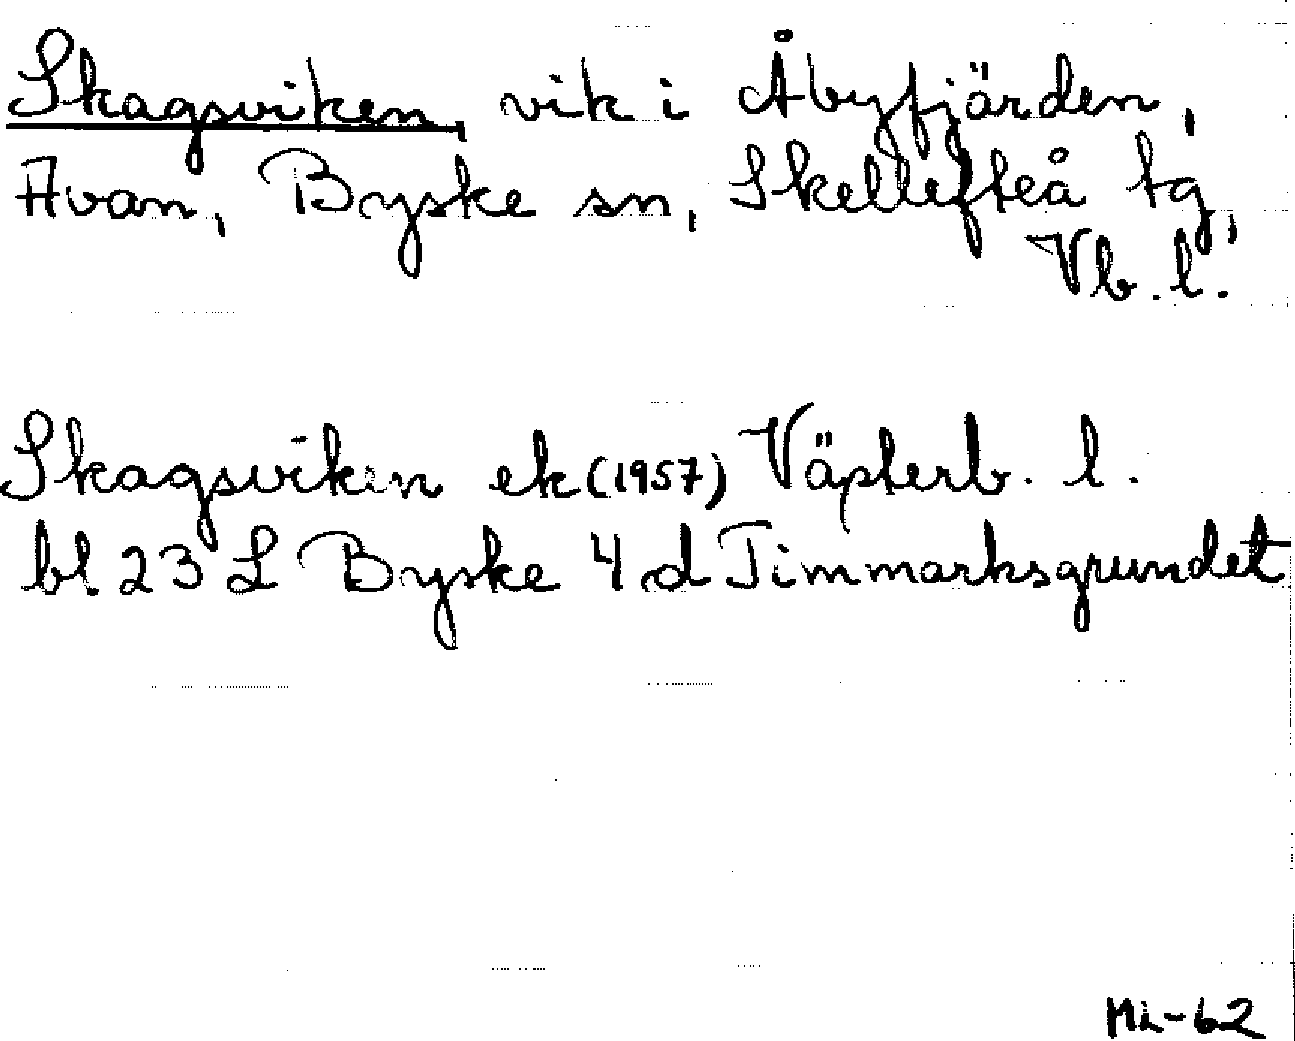 Skagsviken, vik i Åbyfjärden,
Avan, Byske sn, Skellefteå tg,
Vb. l.
Skagsviken ek (1957) Västerb. l.
bl. 23 L Byske 4 d Timmarksgrundet
-62